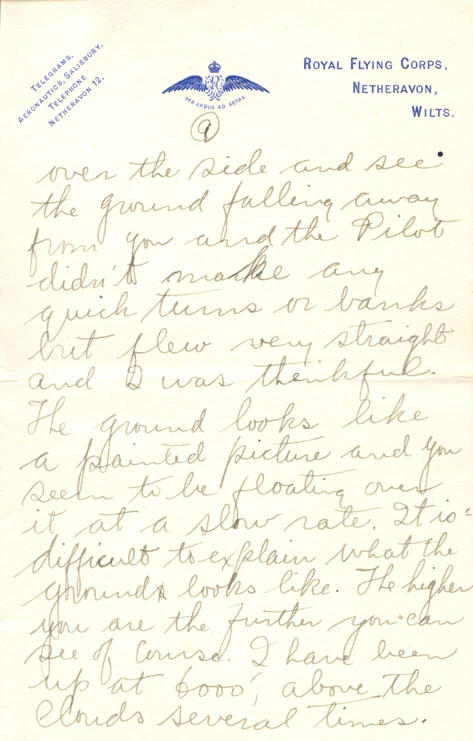 TELEGRAMS,
AERONAUTICS, SALISBURY.
TELEPHONE
NETHERAVON 12.
PER ARDUA AD ASTRA
ROYAL FLYING CORPS,
NETHERAVON,
WILTS.
9
over the side and see
the ground falling away
from you and the Pilot
didn't make any
quick turns or banks
but flew very straight
and I was thenkful.
The ground looks like
a painted picture and you
seem to be floating over
it at a slow rate. It is
difficult to explain what the
ground looks like. The higher
you are the further you can
see of course. I have been
up at 6000', above the
clouds several times.